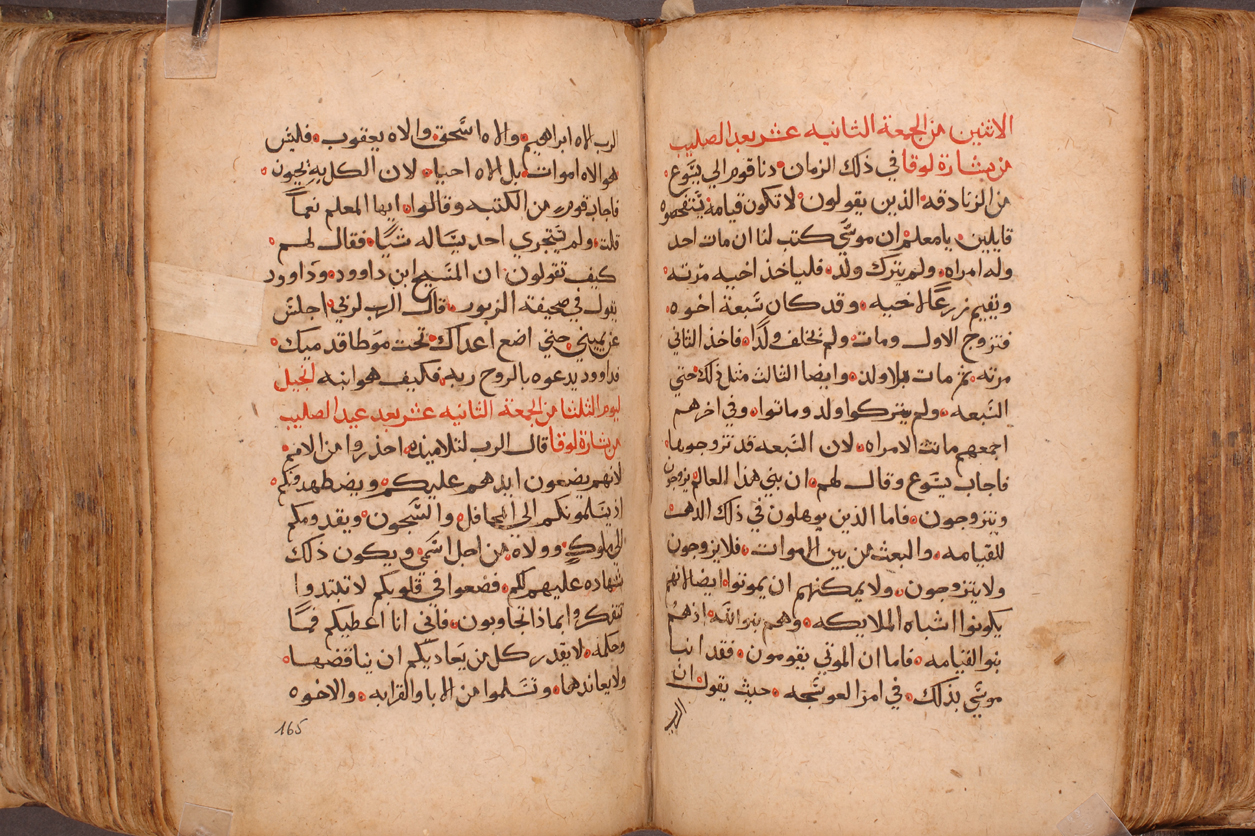 الاثنين من الجمعة الثانيه عشر بعد الصليب
من بشارة لوقا في ذلك الزمان دنا قوم الي يسوع
من الزنادقه الذين يقولون لا تكون قيامه يتفحصوه
قايلين يا معلم ان موسي كتب لنا ان مات احد
وله امراه ولم يترك ولد فلياخذ اخيه مرته
ويقيم زرعًا لاخيه وقد كان سبعة اخوه
فتزوج الاول ومات ولم يخلف ولدًا فاخذ الثاني
مرته ثم مات بلا ولد وايضا الثالث مثل ذلك حتي
السبعه ولم يتركوا ولد وماتوا وفي اخرهم
اجمعهم ماتت الامراه لان السبعه قد تزوجوها
فاجاب يسوع وقال لهم ان بني هذا العالم يزوجون
ويتزوجون فاما الذين يوهلون في ذلك الدهر
للقيامه والبعث من بين الاموات فلا يزوجون
ولا يتزوجون ولا يمكنهم ان يموتوا ايضا لانهم
يكونوا اشباه الملايكه وهم بنو الله اذ هم
بنو القيامه فاما ان الموتي يقومون فقد انبا
موسي بذلك في امر العوسجه حيث يقول ان
الرب
الرب الاه ابراهيم والاه اسحق والاه يعقوب فليس
هو الاه اموات بل الاه احيا لان الكل به يحيون
فاجاب قوم من الكتبه وقالوا ايها المعلم نعمًا
قلت ولم يتجري احد يساله شيًا فقال لهم
كيف تقولون ان المسيح ابن داوود وداوود
يقول في صحيفة الزبور قال الرب لربي اجلس
عن يميني حتي اضع اعداك تحت موطا قدميك
فداوود يدعوه بالروح ربه فكيف هو ابنه انجيل
ليوم الثلثا من الجمعة الثانيه عشر بعد عيد الصليب
من بشارة لوقا قال الرب لتلاميذه احذروا من الامم
لانهم يضعون ايديهم عليكم ويضطهدونكم
اذ يسلمونكم الي المحافل والسجون ويقدمونكم
الي ملوك وولاه من اجل اسمي ويكون ذلك
شهاده عليهم كلكم فضعوا في قلوبكم لا تبتدوا
تتفكروا بماذا تجاوبون فاني انا اعطيكم فمًا
وحكمه لا يقدر كل من يعاديكم ان يناقضها
ولا يعاندها وتسلموا من الابا والقرابه والاخوه
165